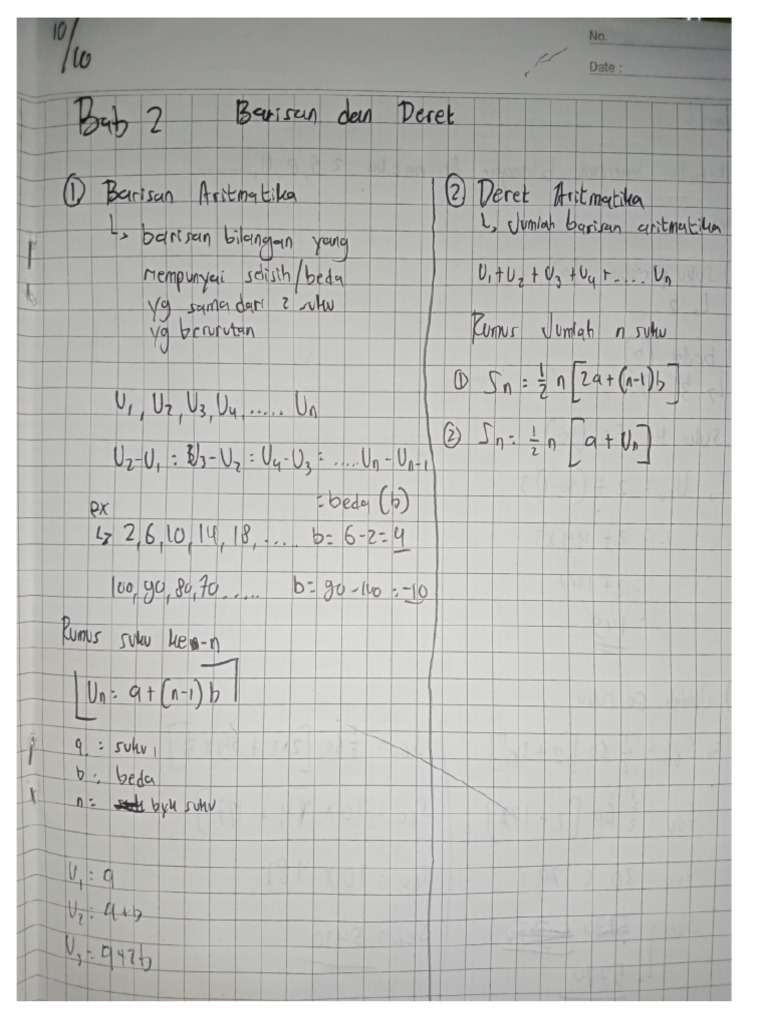 10/10
No.
Date :
Bab 2 Barisan dan Deret
① Barisan Aritmatika
↳ barisan bilangan yang
mempunyai selisih/beda
yg sama dari 2 suku
yg berurutan
U₁, U₂, U₃, U₄, ..... Uₙ
U₂-U₁ = U₃-U₂ = U₄-U₃ = ....Uₙ-Uₙ₋₁
= beda (b)
ex
↳ 2, 6, 10, 14, 18, .... b = 6-2 = 4
100, 90, 80, 70 ..... b = 90-100 = -10
Rumus suku ke-n
Uₙ = a + (n-1) b
a : suku 1
b : beda
n = byk suku
U₁ = a
U₂ = a+b
U₃ = a+2b
② Deret Aritmatika
↳ Jumlah barisan aritmatika
U₁ + U₂ + U₃ + U₄ + .... Uₙ
Rumus Jumlah n suku
① Sₙ = ½ n [2a + (n-1) b]
② Sₙ = ½ n [a + Uₙ]